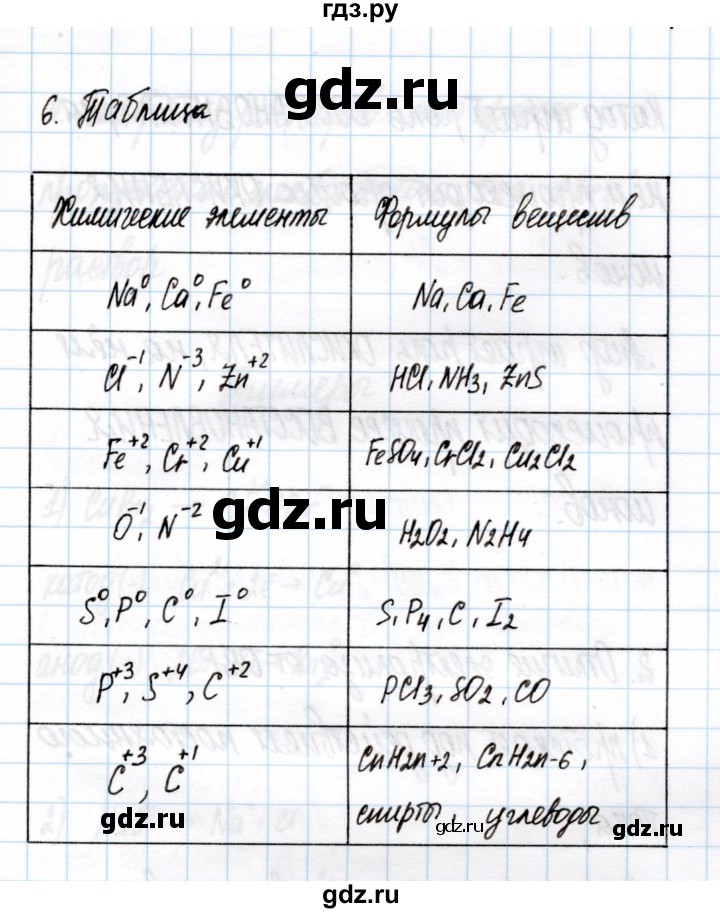 гдз.ру
gdz.ru
6. Таблица
Химические элементы	Формулы веществ
Na⁰, Ca⁰, Fe⁰	Na, Ca, Fe
Cl⁻¹, N⁻³, Zn⁺²	HCl, NH3, ZnS
Fe⁺², Cr⁺², Cu⁺¹	FeSO4, CrCl2, Cu2Cl2
gdz.ru
O⁻¹, N⁻²	H2O2, N2H4
S⁰, P⁰, C⁰, I⁰	S, P4, C, I2
P⁺³, S⁺⁴, C⁺²	PCl3, SO2, CO
C⁺³, C⁺¹	CnH2n+2, CnH2n-6,
спирты, углеводы
gdz.ru
gdz.ru
gdz.ru
gdz.ru